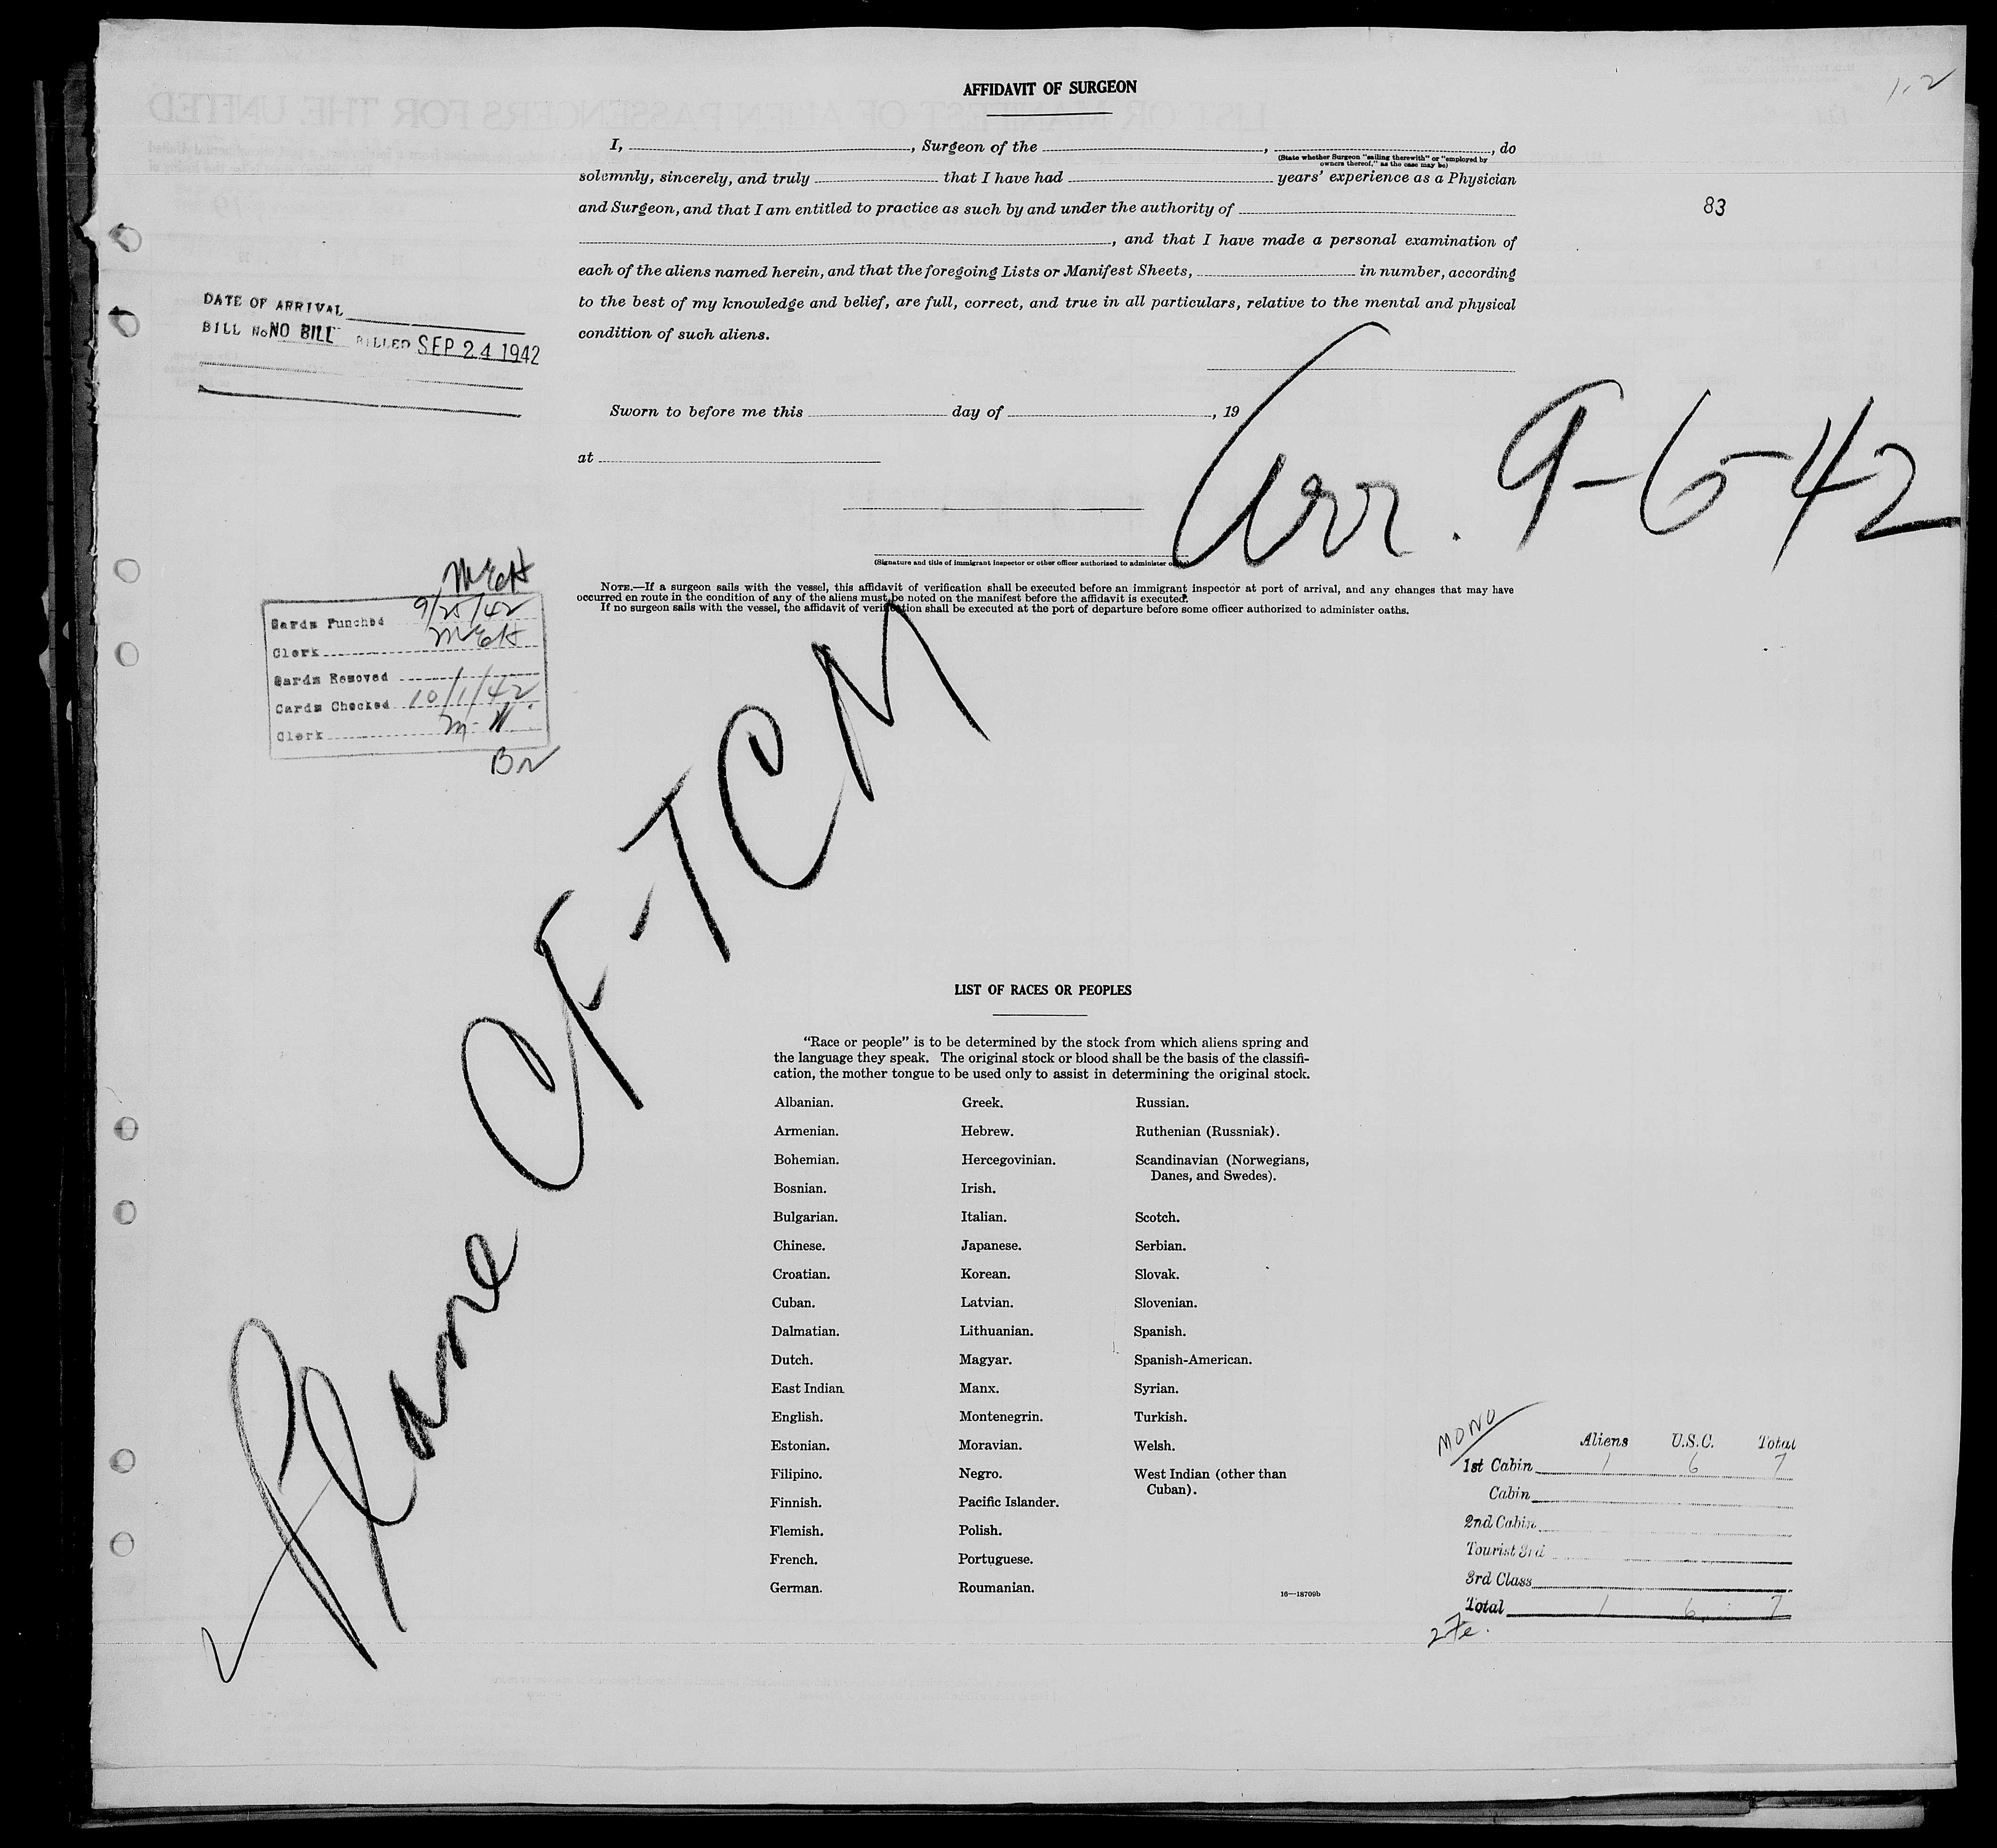 AFFIDAVIT OF SURGEON
1, 2
I, , Surgeon of the , , do
(State whether Surgeon "sailing therewith" or "employed by
owners thereof," as the case may be)
solemnly, sincerely, and truly that I have had years' experience as a Physician
and Surgeon, and that I am entitled to practice as such by and under the authority of
83
, and that I have made a personal examination of
each of the aliens named herein, and that the foregoing Lists or Manifest Sheets, in number, according
to the best of my knowledge and belief, are full, correct, and true in all particulars, relative to the mental and physical
condition of such aliens.
DATE OF ARRIVAL
BILL No NO BILL BILLED SEP 24 1942
Sworn to before me this day of , 19
at
Arr. 9-6-42
(Signature and title of immigrant inspector or other officer authorized to administer
NOTE.—If a surgeon sails with the vessel, this affidavit of verification shall be executed before an immigrant inspector at port of arrival, and any changes that may have
occurred en route in the condition of any of the aliens must be noted on the manifest before the affidavit is executed.
If no surgeon sails with the vessel, the affidavit of verification shall be executed at the port of departure before some officer authorized to administer oaths.
Cards Punched 9/25/42
Clerk
Cards Removed
Cards Checked 10/1/42
Clerk
Plane CF-TCM
LIST OF RACES OR PEOPLES
"Race or people" is to be determined by the stock from which aliens spring and
the language they speak. The original stock or blood shall be the basis of the classifi-
cation, the mother tongue to be used only to assist in determining the original stock.
Albanian. Greek. Russian.
Armenian. Hebrew. Ruthenian (Russniak).
Bohemian. Hercegovinian. Scandinavian (Norwegians,
Danes, and Swedes).
Bosnian. Irish.
Bulgarian. Italian. Scotch.
Chinese. Japanese. Serbian.
Croatian. Korean. Slovak.
Cuban. Latvian. Slovenian.
Dalmatian. Lithuanian. Spanish.
Dutch. Magyar. Spanish-American.
East Indian Manx. Syrian.
English. Montenegrin. Turkish.
Estonian. Moravian. Welsh.
Filipino. Negro. West Indian (other than
Cuban).
Finnish. Pacific Islander.
Flemish. Polish.
French. Portuguese.
German. Roumanian.
16—18709b
MONO
Aliens U.S.C. Total
1st Cabin 1 6 7
Cabin
2nd Cabin
Tourist 3rd
3rd Class
Total 1 6 7